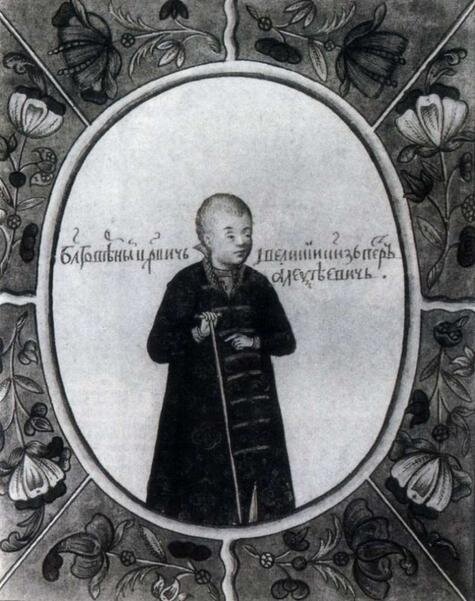 Блговѣрны црвичь і великиі кнзь петръ
алеѯѣевичь .